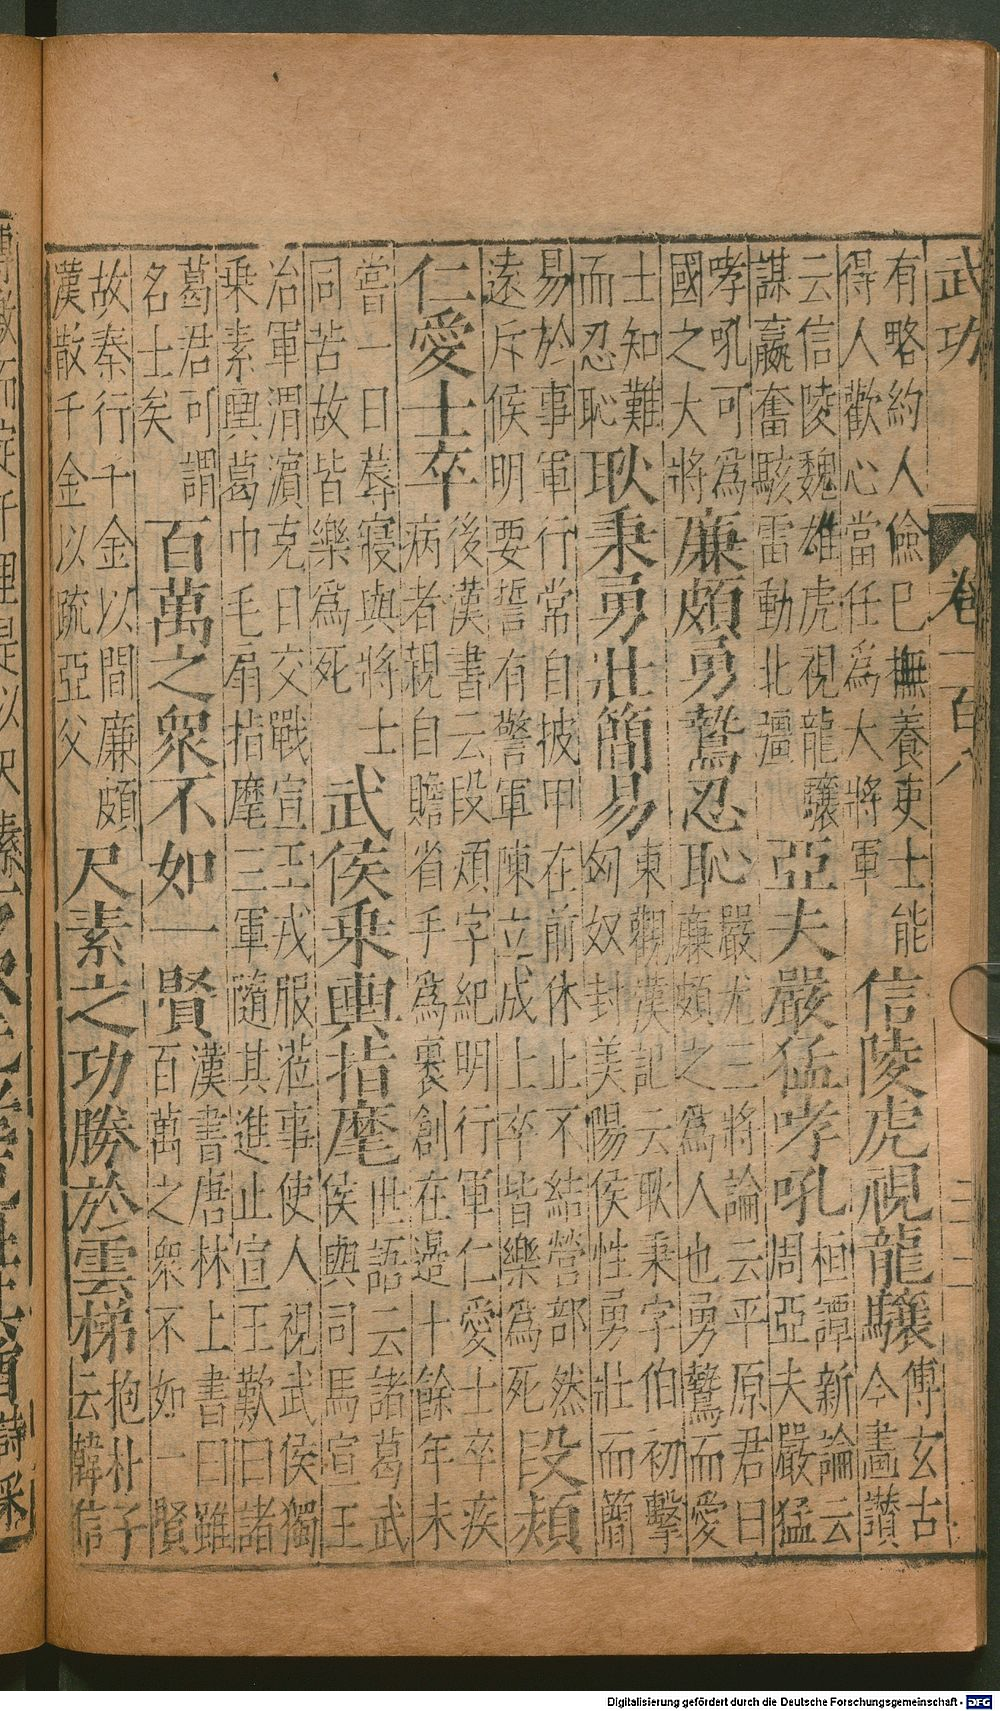 武功 卷一百八
有略約人儉已撫養吏士能得人歡心當任為大將軍 信陵虎視龍驤 傅玄古今畫讃
云信陵魏雄虎視龍驤謀嬴奮駭雷動北疆 亞夫嚴猛哮吼 桓譚新論云周亞夫嚴猛
哮吼可為國之大將 廉頗勇鷙忍恥 嚴尤三將論云平原君曰廉頗之為人也勇鷙而愛
士知難而忍恥 耿秉勇壯簡易 東觀漢記云耿秉字伯初擊匈奴封美陽侯性勇壯而簡
易於事軍行常自披甲在前休止不結營部然遠斥候明要誓有警軍陳立成上卒皆樂為死 段熲
仁愛士卒 後漢書云段熲字紀明行軍仁愛士卒疾病者親自贍省手為裹創在邊十餘年未
嘗一日蓐寢與將士同苦故皆樂為死 武侯乗輿指麾 世語云諸葛武侯與司馬宣王
冶軍渭濵克日交戰宣王戎服蒞事使人視武侯獨乗素輿葛巾毛扇指麾三軍隨其進止宣王歎曰諸
葛君可謂名士矣 百萬之衆不如一賢 漢書唐林上書曰雖百萬之衆不如一賢
故秦行千金以間廉頗漢散千金以疏亞父 尺素之功勝於雲梯 抱朴子云韓信
Digitalisierung gefördert durch die Deutsche Forschungsgemeinschaft - DFG